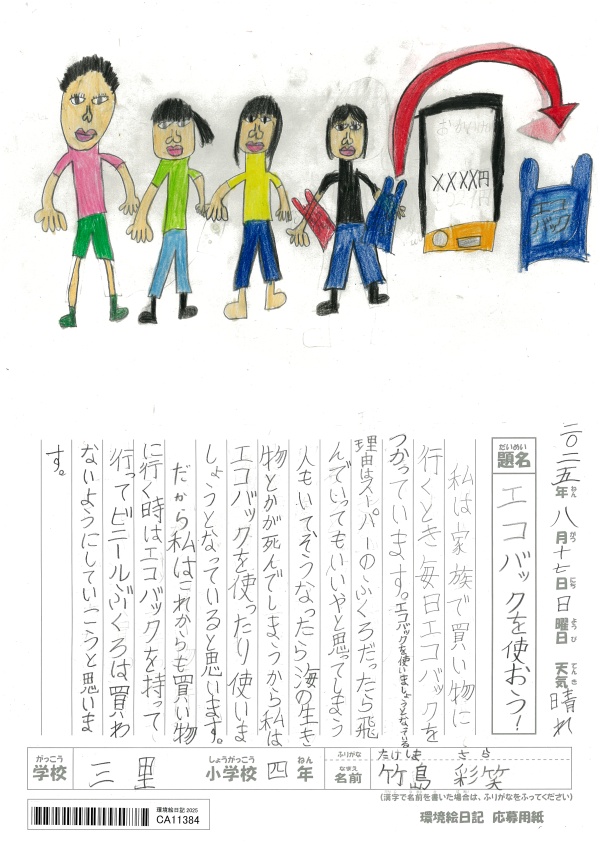 おかいけい
XXXX円
エコ
バック
二〇二五年八月十七日日曜日 天気晴れ
題名 エコバックを使おう!
私は家族で買い物に
行くとき毎日エコバックを
つかっています。エコバックを使いましょうとなっている
理由はスーパーのふくろだったら飛
んでいってもいいやと思ってしまう
人もいてそうなったら海の生き
物とかが死んでしまうから私は
エコバックを使ったり使いま
しょうとなっていると思います。
だから私はこれからも買い物
に行く時はエコバックを持って
行ってビニールぶくろは買わ
ないようにしていこうと思いま
す。
がっこう しょうがっこう ねん ふりがな たけしま さら
学校 三里 小学校 四年 名前 竹島 彩笑
(漢字で名前を書いた場合は、ふりがなをふってください)
環境絵日記 2025
CA11384
環境絵日記 応募用紙